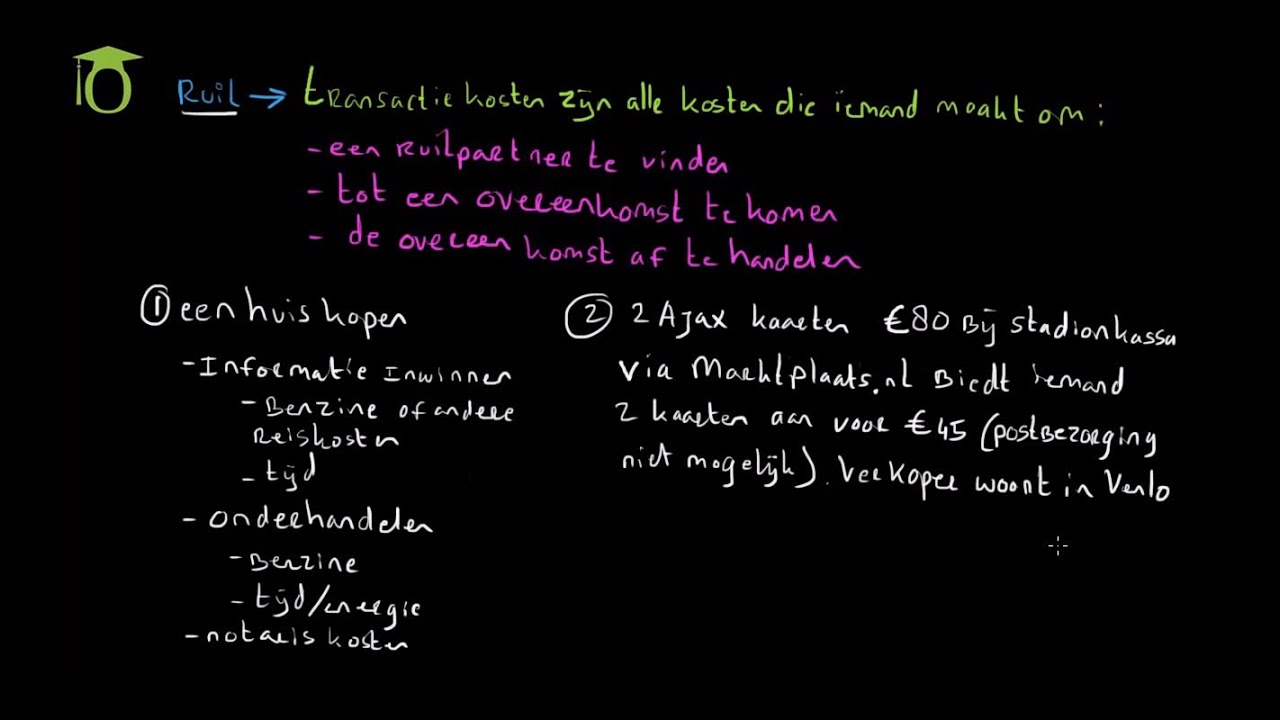 iO
Ruil → transactie kosten zijn alle kosten die iemand maakt om:
- een ruilpartner te vinden
- tot een overeenkomst te komen
- de overeenkomst af te handelen
① een huis kopen
- Informatie inwinnen
- Benzine of andere
Reiskosten
- tijd
- onderhandelen
- Benzine
- tijd/energie
- notaris kosten
② 2 Ajax kaarten €80 Bij stadionkassa
via Marktplaats.nl Biedt iemand
2 kaarten aan voor €45 (postbezorging
niet mogelijk). Verkoper woont in Venlo